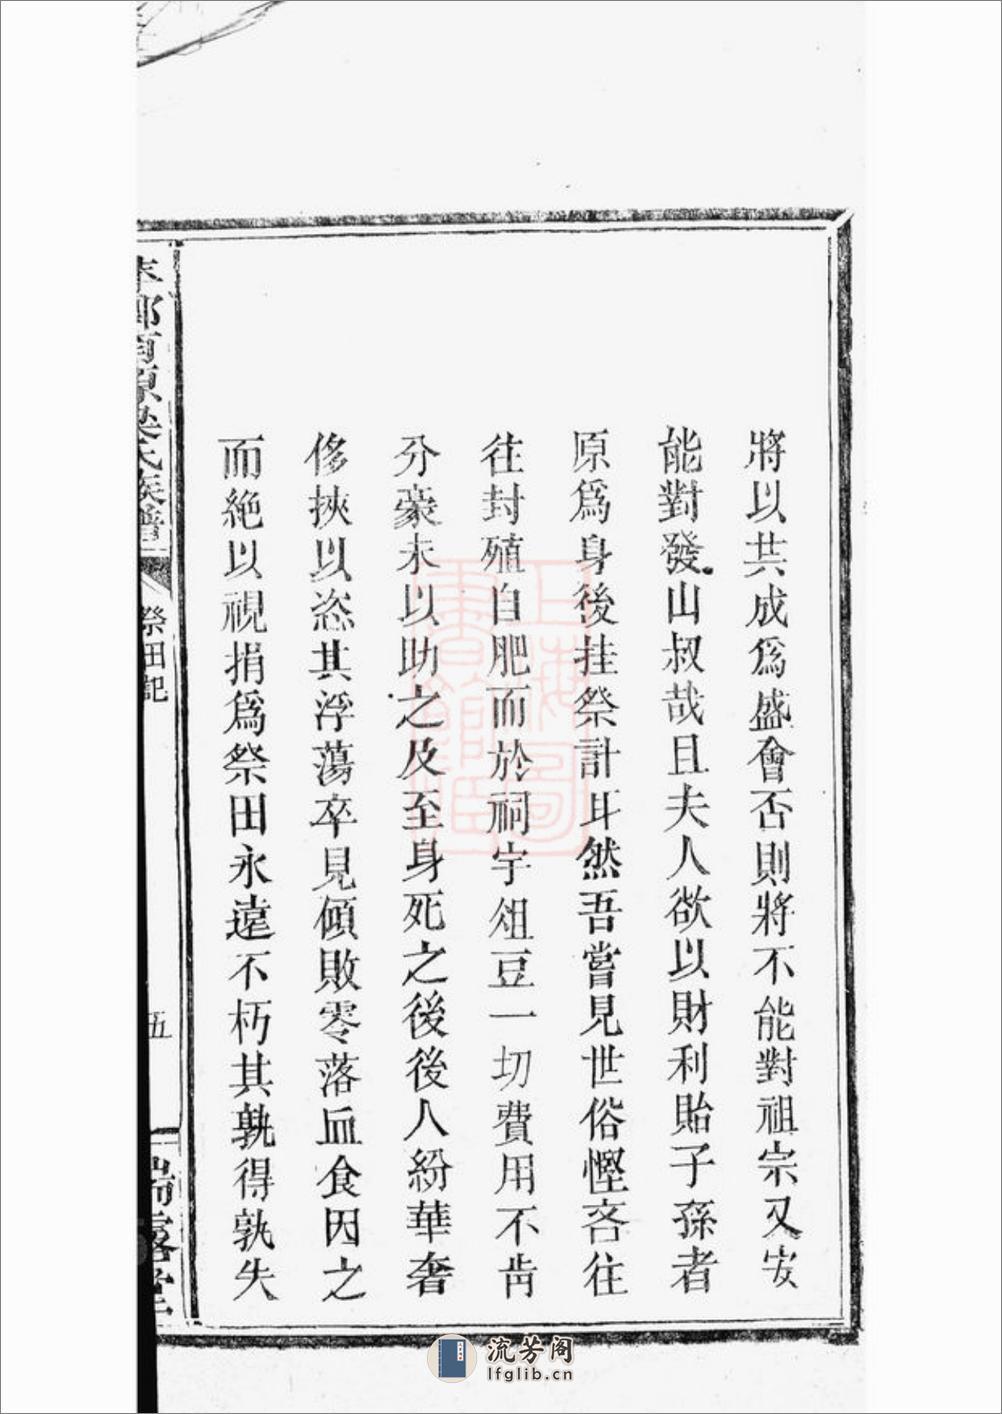 將以共成爲盛會否則將不能對祖宗又安
能對發山叔哉且夫人欲以財利貽子孫者
原爲身後挂祭計耳然吾嘗見世俗慳吝往
往封殖自肥而於祠宇俎豆一切費用不肯
分豪末以助之及至身死之後後人紛華奢
侈挾以恣其浮蕩卒見傾敗零落血食因之
而絶以視捐爲祭田永遠不朽其孰得孰失
原梁氏族譜
祭田記
五
堂
上海圖書館藏
流芳阁
lfglib.cn